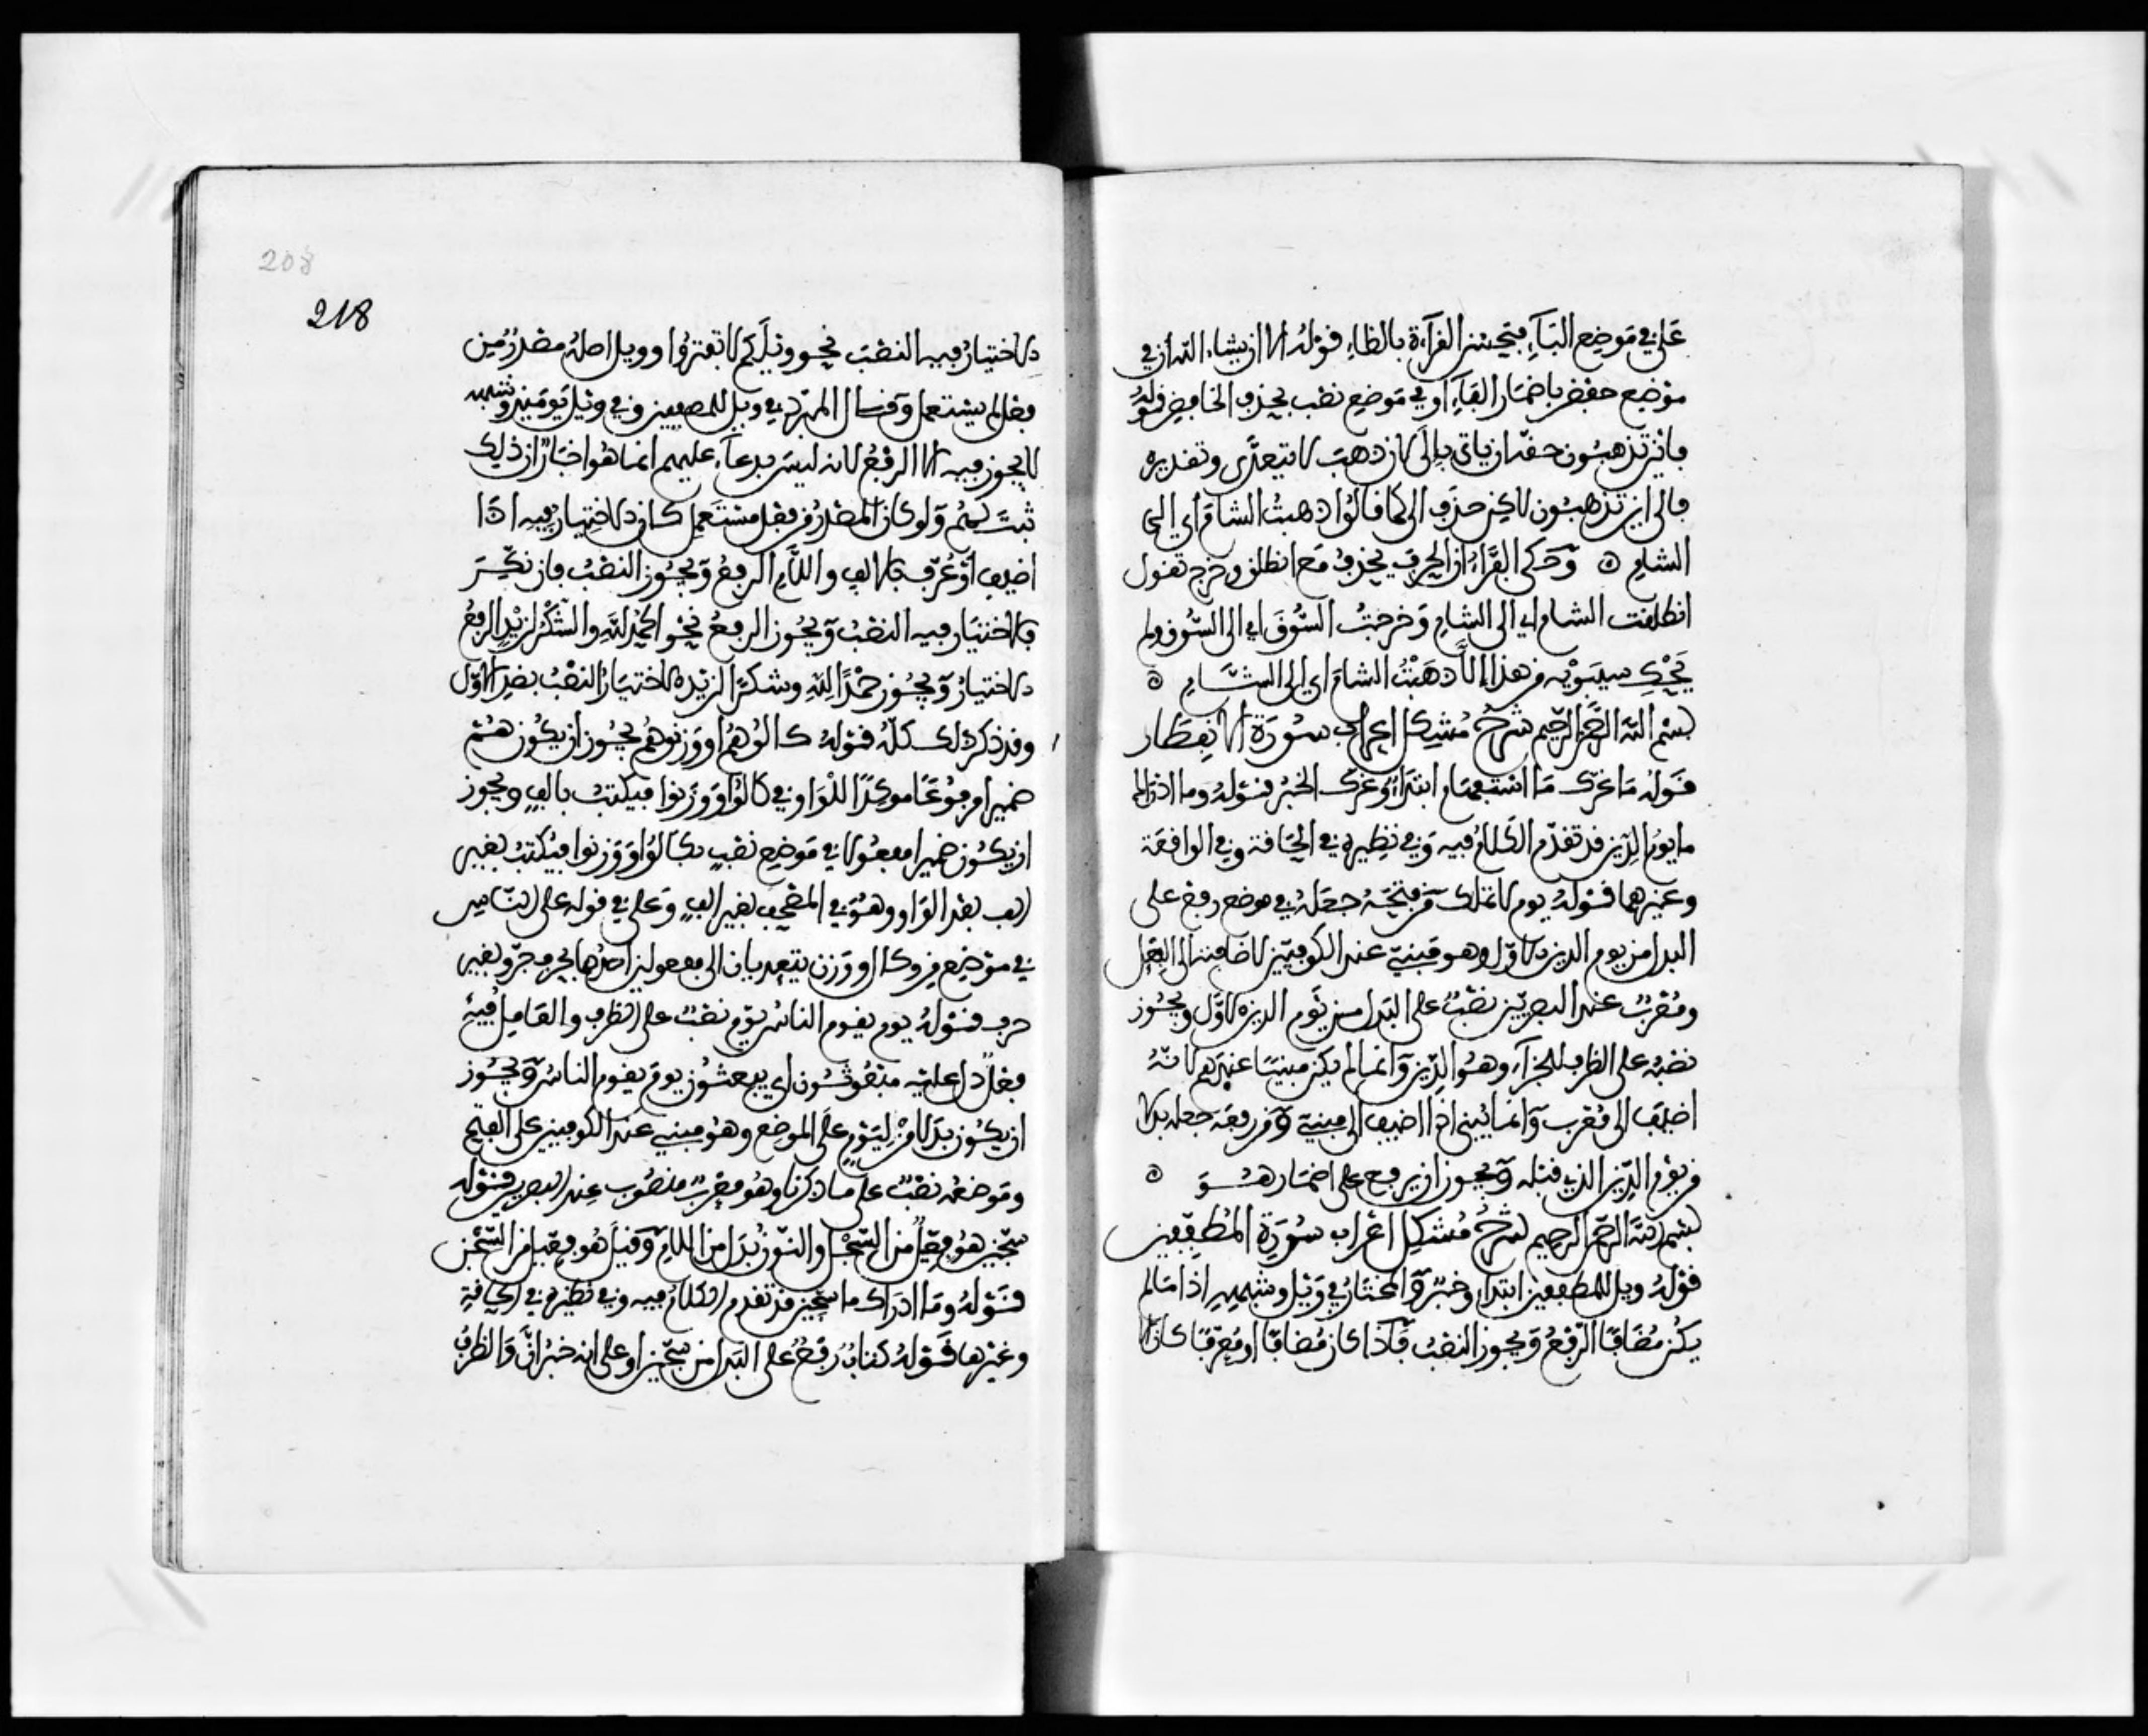 على في موضع الباء فتحسن القراءة بالظاء قوله الا ان يشاء الله ان في
موضع خفض باضمار الباء او في موضع نصب بحذف الخافض قوله
فاين تذهبون حقه ان ياتي بالى لان ذهب لا يتعدى وتقديره
فالى اين تذهبون لاكن حذف الى كما قالوا ذهبت الشام اي الى
الشام وحكى الفراء ان الحرف يحذف مع انطلق وخرج تقول
انطلقت الشام اي الى الشام وخرجت السوق اي الى السوق ولم
يحك سيبويه من هذا الا ذهبت الشام اي الى الشام
بسم الله الرحمن الرحيم شرح مشكل اعراب سورة الانفطار
قوله ما غرك ما استفهام ابتداء وغرك الخبر قوله وما ادراك
ما يوم الدين قد تقدم الكلام فيه وفي نظيره في الحاقة وفي الواقعة
وغيرهما قوله يوم لا تملك من فتحه جعله في موضع رفع على
البدل من يوم الدين الاول وهو مبني عند الكوفيين لاضافته الى الفعل
ومعرب عند البصريين نصب على البدل من يوم الدين الاول ويجوز
نصبه على الظرف للجزاء وهو الدين وانما لم يكن مبنيا عندهم لانه
اضيف الى معرب وانما يبنى اذا اضيف الى مبني ومن رفعه جعله بدلا
من يوم الدين الذي قبله ويجوز ان يرفع على اضمار هو
بسم الله الرحمن الرحيم شرح مشكل اعراب سورة المطففين
قوله ويل للمطففين ابتداء وخبر والمختار في ويل وشبهه اذا ما لم
يكن مضافا الرفع ويجوز النصب فاذا كان مضافا او معرفا كان
208
218
الاختيار فيه النصب نحو ويلكم لا تفتروا وويل اصله مصدر من
فعل لم يستعمل وقال المبرد في ويل للمطففين وفي ويل يومئذ وشبهه
لا يجوز فيه الا الرفع لانه ليس بدعاء عليهم انما هو اخبار ان ذلك
ثبت لهم ولو كان المصدر من فعل مستعمل كان الاختيار فيه اذا
اضيف او عرف بالالف واللام الرفع ويجوز النصب فان نكر
فالاختيار فيه النصب ويجوز الرفع نحو الحمد لله والشكر لزيد الرفع
الاختيار ويجوز حمدا لله وشكرا لزيد الاختيار النصب بضد الاول
وقد ذكر ذلك كله قوله كالوهم او وزنوهم يجوز ان يكون هم
ضميرا مرفوعا موكدا للواو في كالوا ووزنوا فيكتب بالف ويجوز
ان يكون ضميرا مفعولا في موضع نصب بكالوا ووزنوا فيكتب بغير
الف بعد الواو وهو في المصحف بغير الف وعلى في قوله على الناس
في موضع من وكال ووزن يتعديان الى مفعولين احدهما بحرف جر وبغير
حرف قوله يوم يقوم الناس يوم نصب على الظرف والعامل فيه
فعل دل عليه مبعوثون اي يبعثون يوم يقوم الناس ويجوز
ان يكون بدلا من ليوم على الموضع وهو مبني عند الكوفيين على الفتح
وموضعه نصب على ما ذكرنا وهو معرب منصوب عند البصريين قوله
سجين هو فعيل من السجل والنون بدل من اللام وقيل هو فعيل من السجن
قوله وما ادراك ما سجين قد تقدم الكلام فيه وفي نظيره في الحاقة
وغيرها قوله كتاب رفع على البدل من سجين او على انه خبر ان والظرف